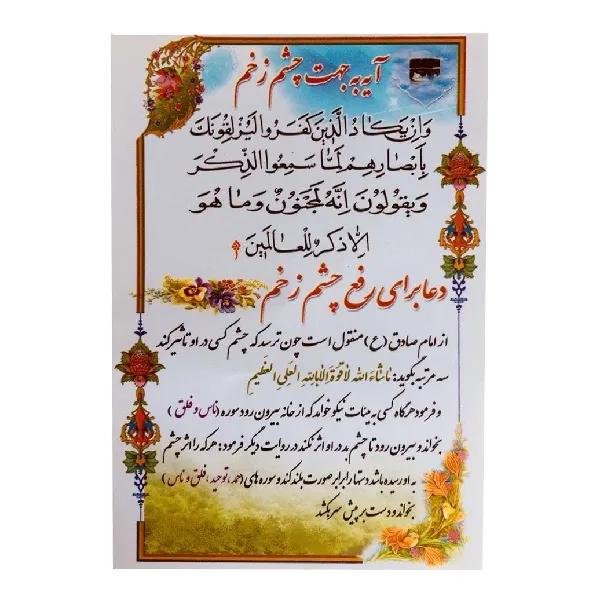 آیه به جهت چشم زخم
وَاِنْ یَکادُ الَّذینَ کَفَرُوا لَیُزْلِقُونَکَ
بِاَبْصارِهِمْ لَمّا سَمِعُوا الذِّکْرَ
وَیَقُولُونَ اِنَّهُ لَمَجْنُونٌ وَما هُوَ
اِلّا ذِکْرٌ لِلْعالَمینَ
دعا برای رفع چشم زخم
از امام صادق (ع) منقول است چون ترسد که چشم کسی در او تاثیر کند
سه مرتبه بگوید: ماشاءَ الله لاقُوَةَ اِلّا بِاللهِ العَلِیِ العَظیمِ
و فرمود هرگاه کسی به هیئات نیکو خواهد که از خانه بیرون رود سوره (ناس و فلق)
بخواند و بیرون رود تا چشم بد در او اثر نکند در روایت دیگر فرمود: هر که را اثر چشم
به او رسیده باشد دستها را برابر صورت بلند کند و سوره های (حمد، توحید، فلق و ناس)
بخواند و دست بر پیش سر بکشد